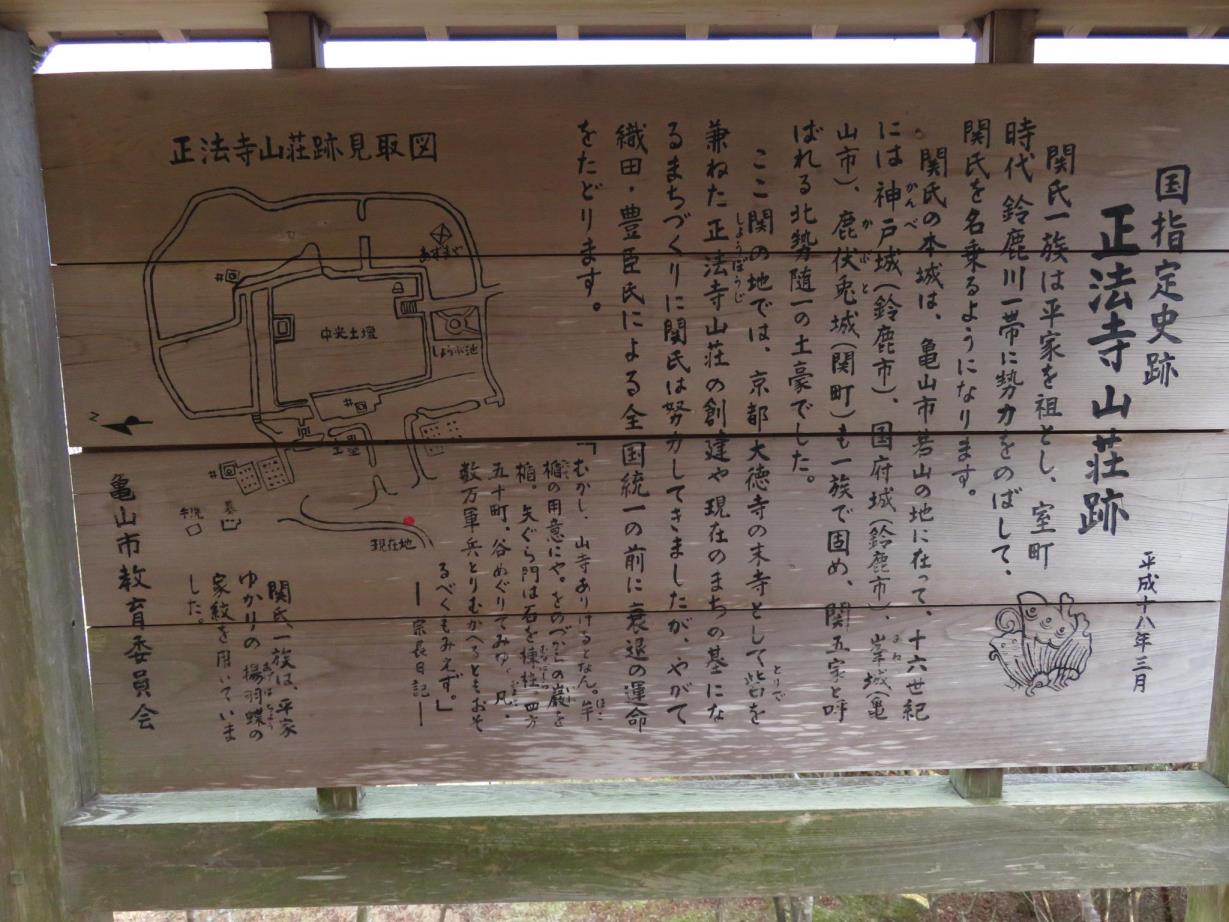 国指定史跡
正法寺山荘跡
平成十八年三月
関氏一族は平家を祖とし、室町
時代 鈴鹿川一帯に勢力をのばして、
関氏を名乗るようになります。
関氏の本城は、亀山市若山の地に在って、十六世紀
には神戸城(鈴鹿市)、国府城(鈴鹿市)、峯城(亀
かんべ
みね
山市)、鹿伏兎城(関町)も一族で固め、関五家と呼
かぶと
ばれる北勢随一の土豪でした。
ここ関の地では、京都大徳寺の末寺として砦を
とりで
兼ねた正法寺山荘の創建や現在のまちの基にな
しょうぼうじ
るまちづくりに関氏は努力してきましたが、やがて
織田・豊臣氏による全国統一の前に衰退の運命
をたどります。
「むかし、山寺ありけるとなん。鉾
ほこ
楯の用意にや。をのづからの巌を
楯。矢ぐら門は石を棟柱、四方
五十町。谷めぐりてみゆ。凡、
数万軍兵とりむかへるともおそ
るべくもみえず。」
―宗長日記―
正法寺山荘跡見取図
あずまや
井
中央土壇
しょうぶ池
井
土塁
井
手洗
墓
現在地
N
関氏一族は、平家
ゆかりの揚羽蝶の
あげはちょう
家紋を用いていま
した。
亀山市教育委員会